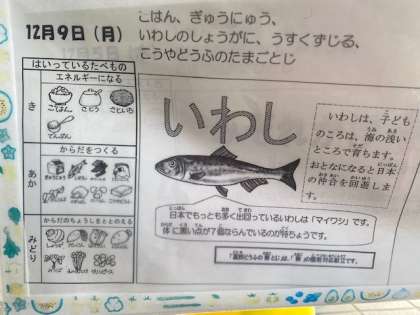 12月9日（月）
ごはん、ぎゅうにゅう、
いわしのしょうがに、うすくずじる、
こうやどうふのたまごとじ
はいっているたべもの
エネルギーになる
き
ごはん
さとう
さといも
でんぷん
からだをつくる
あか
からだのちょうしをととのえる
みどり
いわし
いわしは、子ども
のころは、海の浅い
ところで育ちます。
おとなになると日本
の沖合を回遊しま
す。
日本でもっとも多く出回っているいわしは「マイワシ」です。
体に黒い点が7個ならんでいるのが特ちょうです。